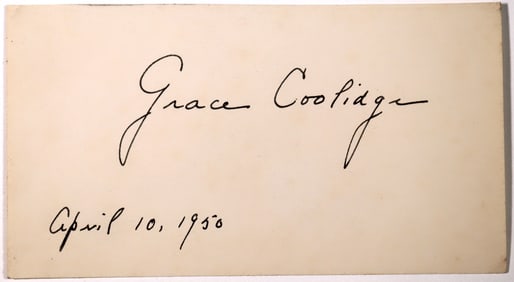 Grace Coolidge
April 10, 1950